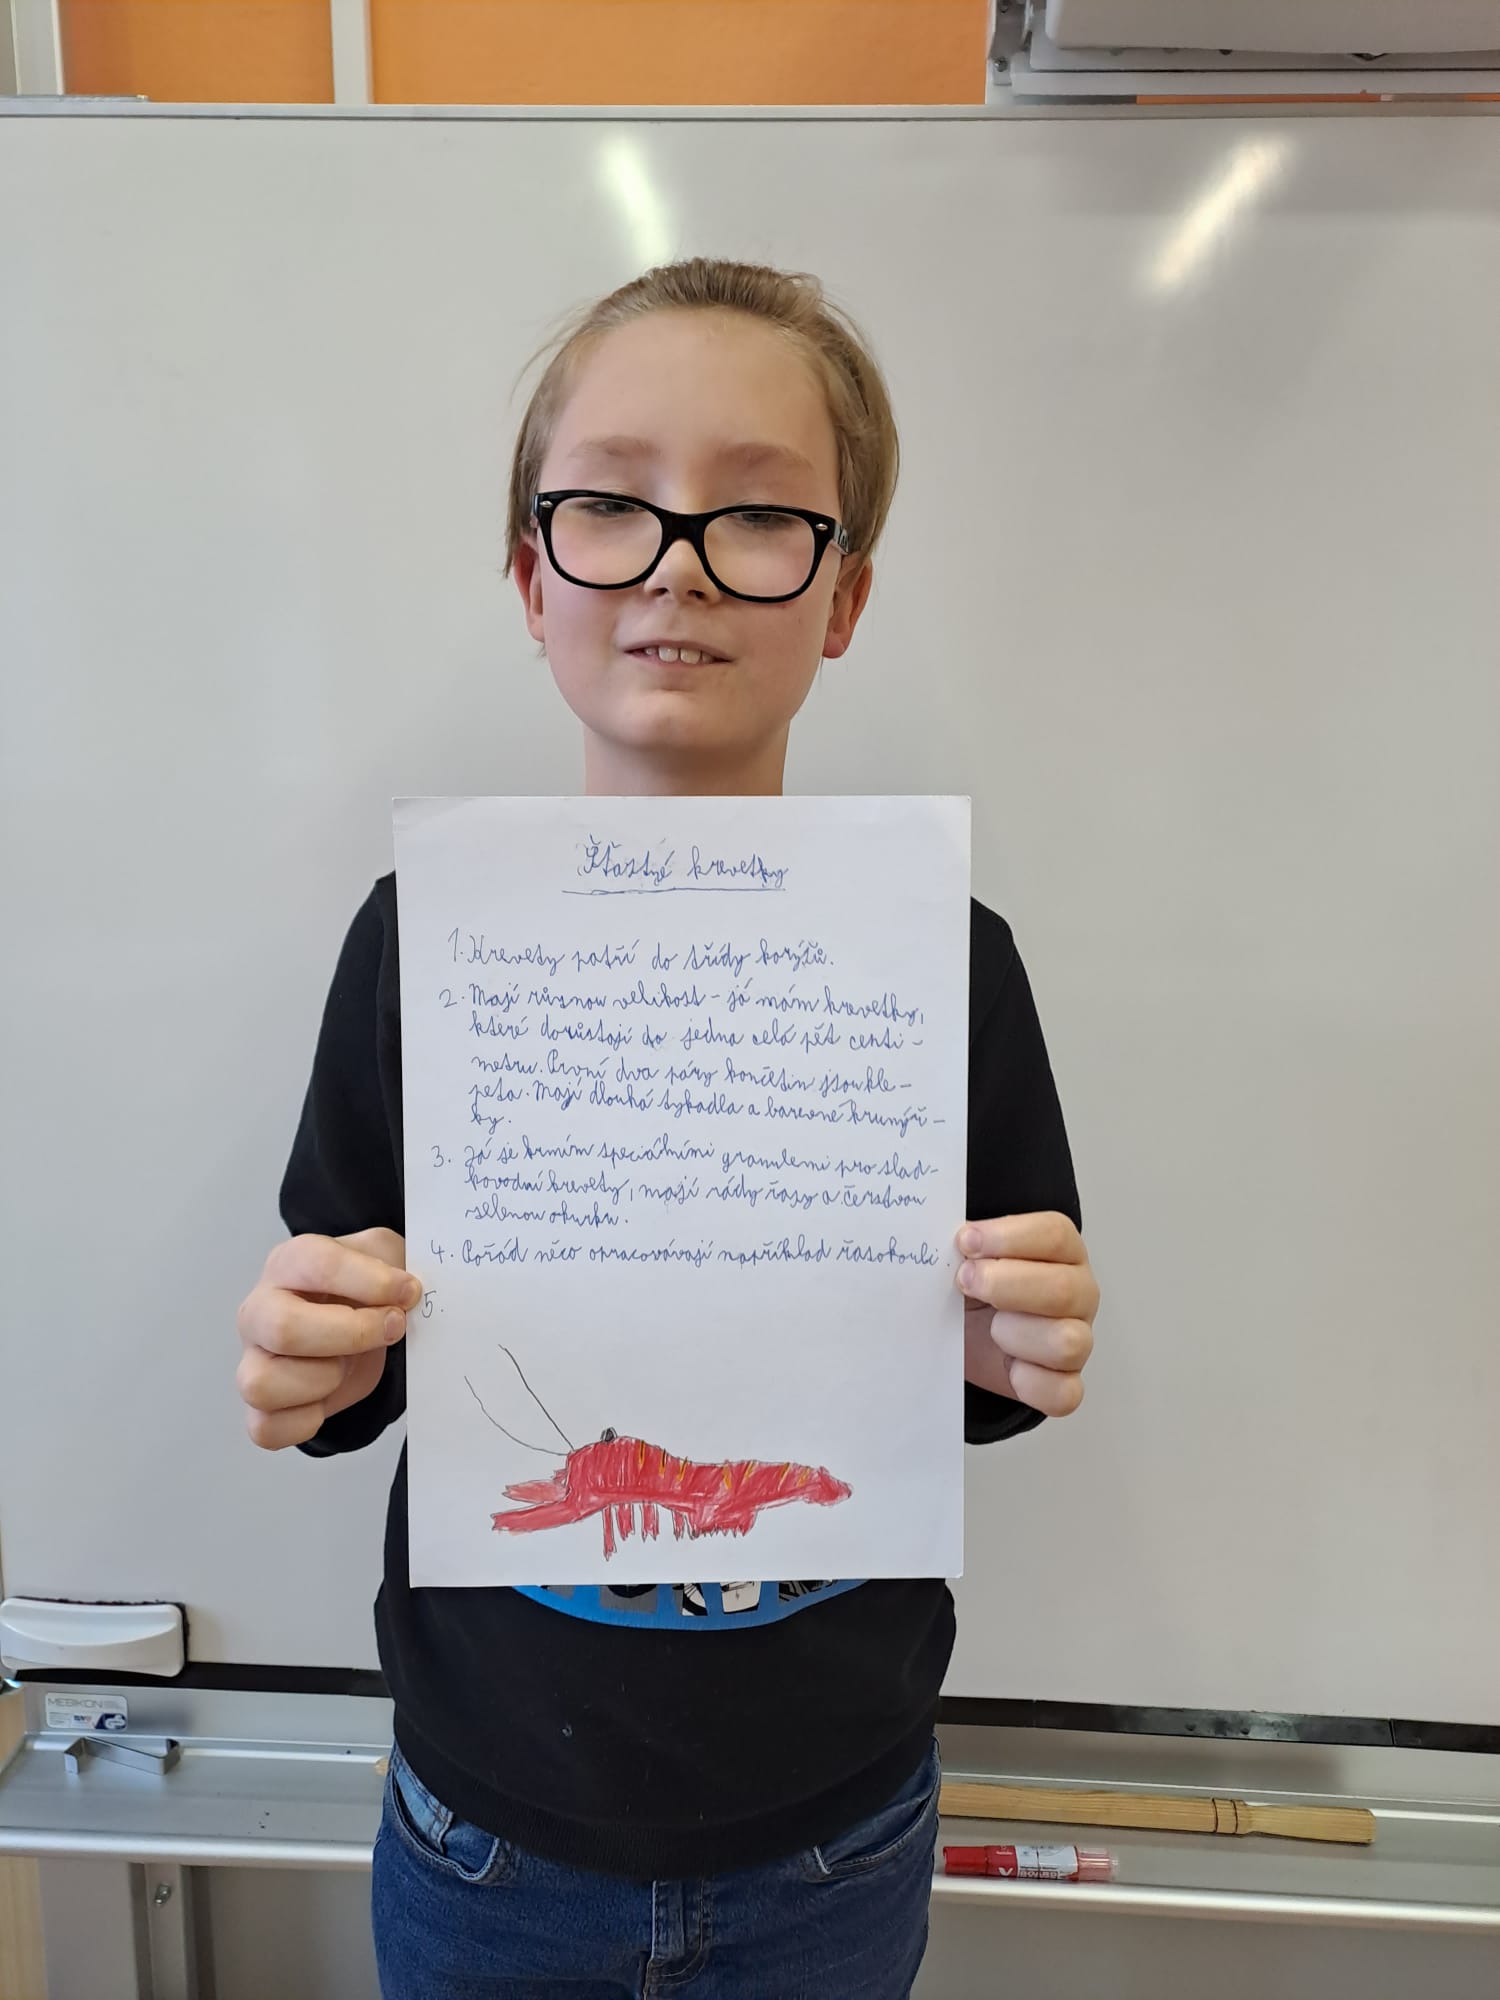 Šťastné krevetky
1. Krevety patří do třídy korýšů.
2. Mají různou velikost - já mám krevetky,
které dorůstají do jedna celá pět centi -
metru. První dva páry končetin jsou kle -
peta. Mají dlouhá tykadla a barevné krunýř -
ky.
3. Já je krmím speciálními granulemi pro slad -
kovodní krevety, mají rády řasy a čerstvou
zelenou okurku.
4. Pořád něco opracovávají například řasokouli.
5.
MEBIKON
V BOARD